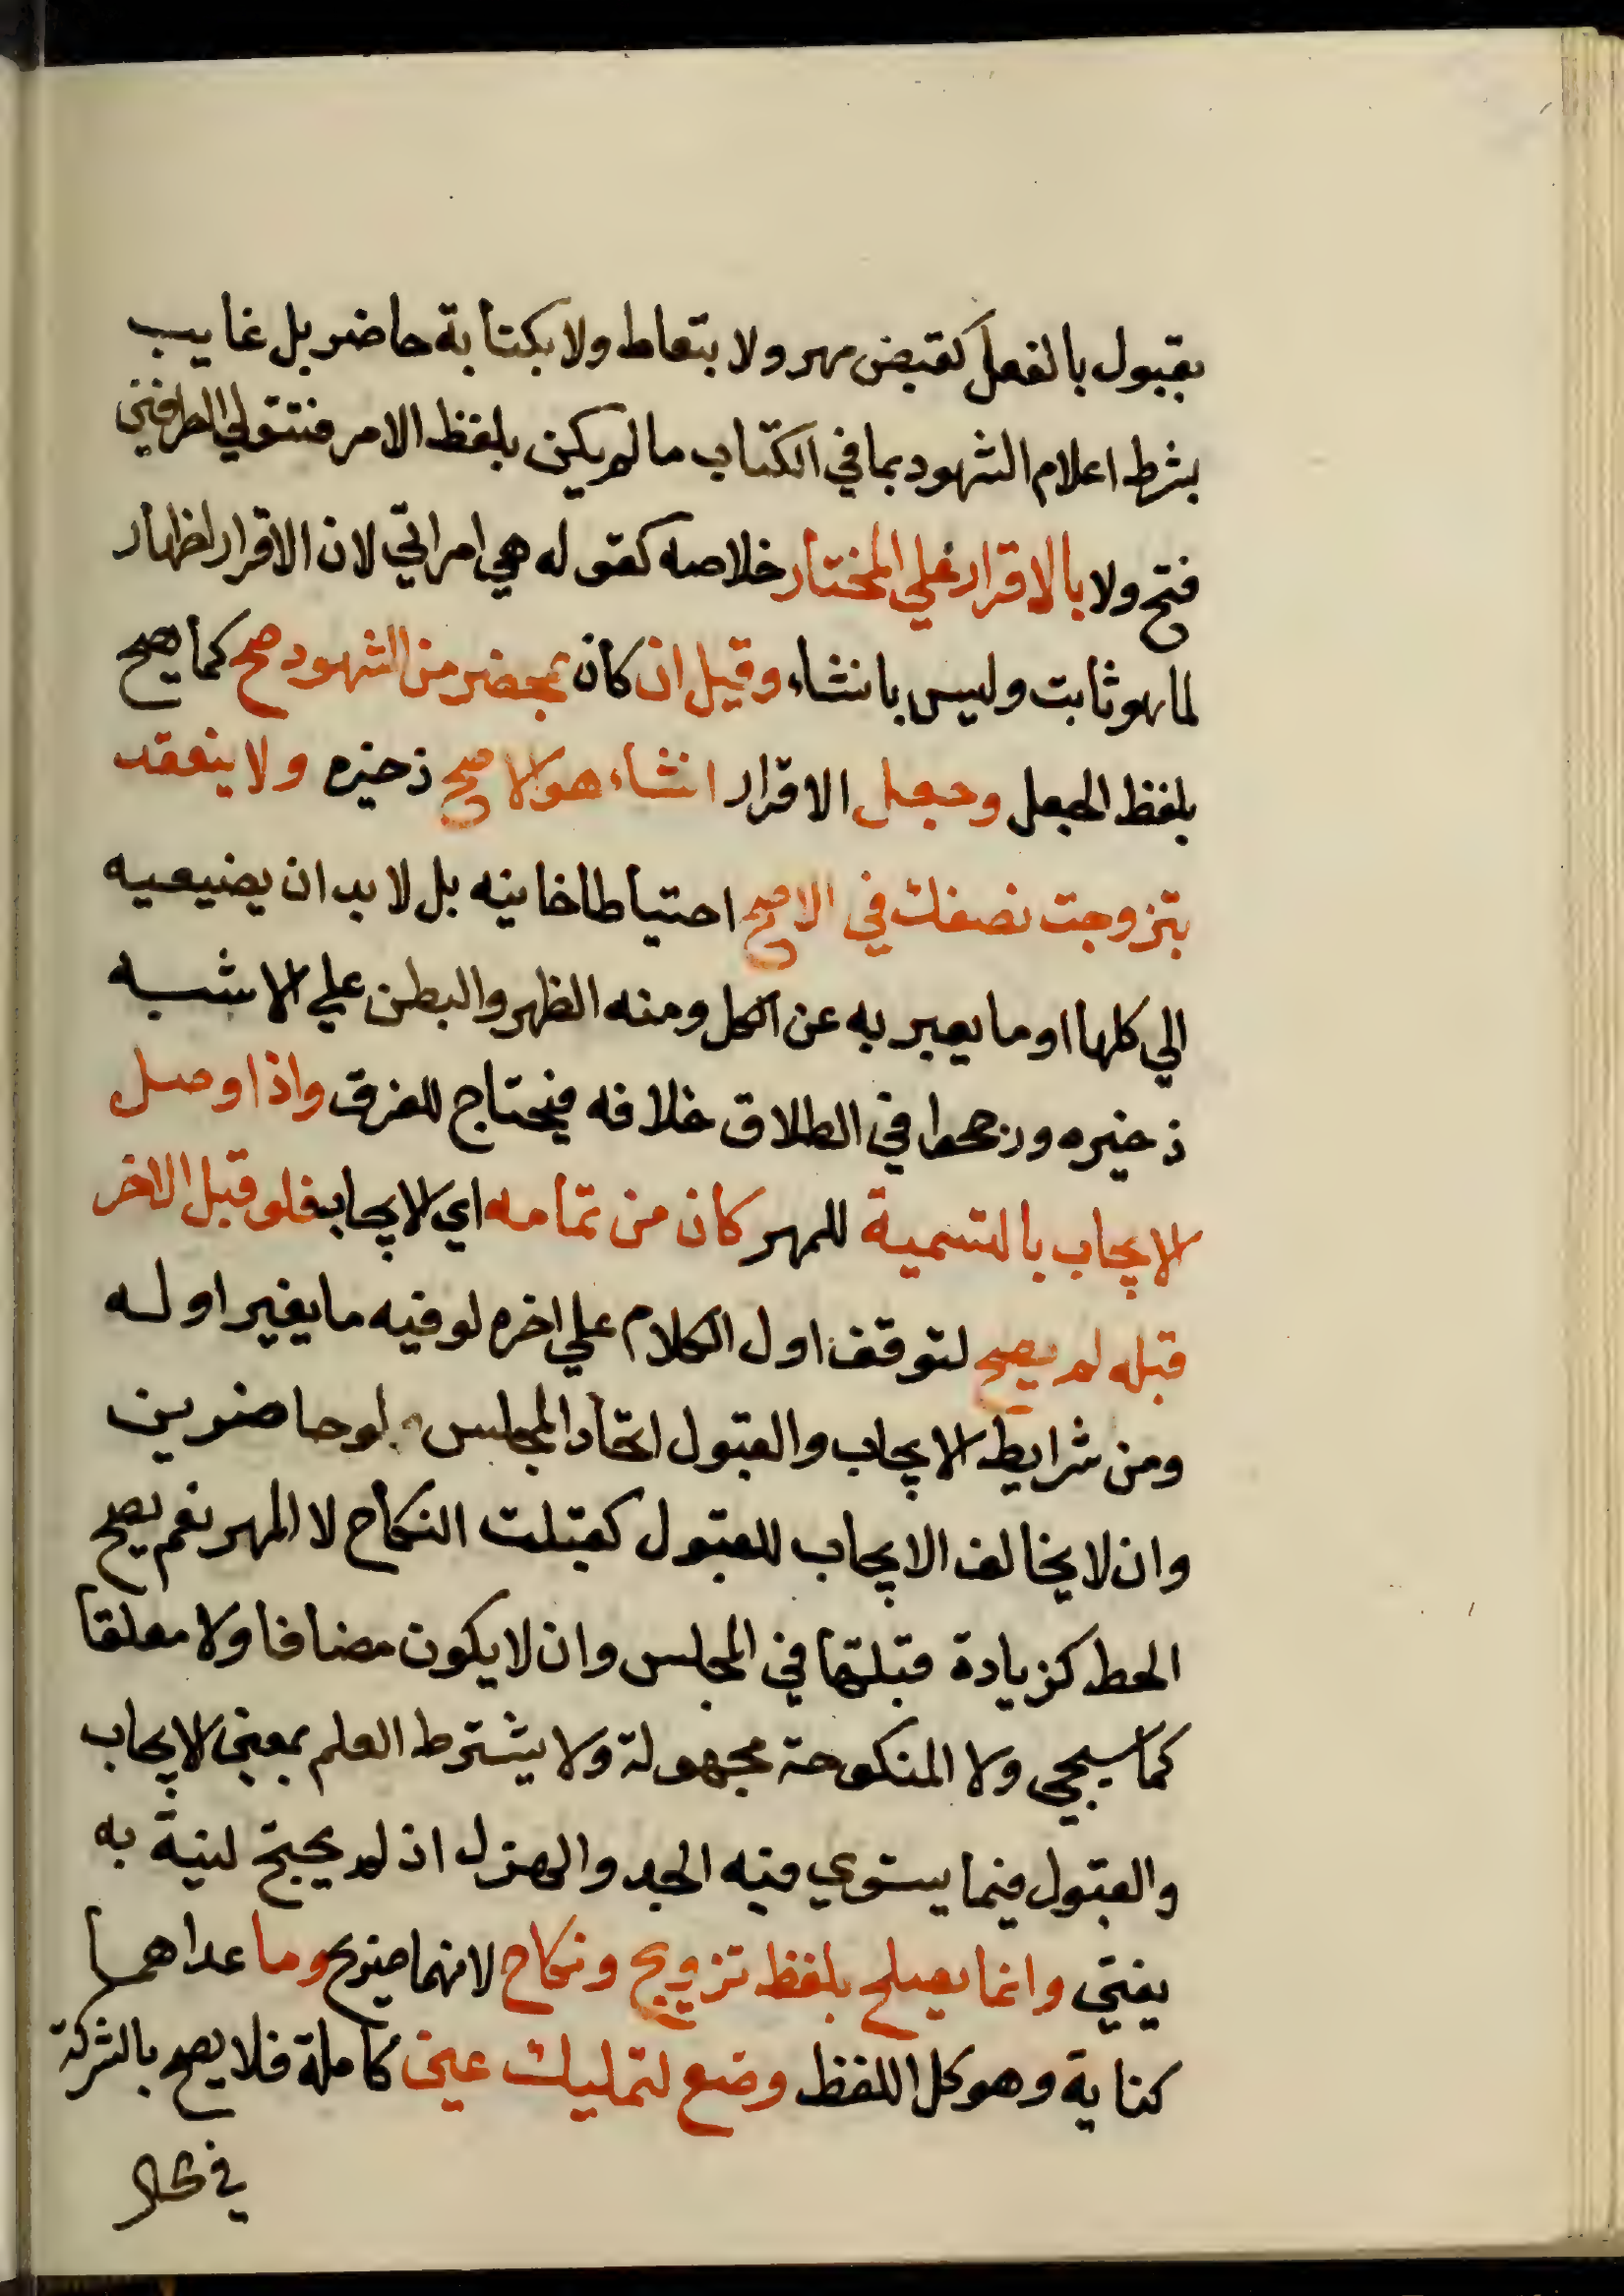 بقبول بالفعل كقبض مهر ولا بتعاط ولا بكتابة حاضر بل غايب
بشرط اعلام الشهود بما في الكتاب ما لم يكن بلفظ الامر فتتولي الطرفين
فتح ولا بالاقرار علي المختار خلاصه كقوله هي امراتي لان الاقرار اظهار
لما هو ثابت وليس بانشاء وقيل ان كان بمحضر من الشهود صح كما يصح
بلفظ الجعل وجعل الاقرار انشاء هو الاصح ذخيره ولا ينعقد
بتزوجت نصفك في الاصح احتياطا خانيه بل لا بد ان يضيفه
الي كلها او ما يعبر به عن الكل ومنه الظهر والبطن علي الاشبه
ذخيره ورجحوا في الطلاق خلافه فيحتاج للفرق واذا وصل
الايجاب بالتسمية للمهر كان من تمامه اي الايجاب فلو قبل الاخر
قبله لم يصح لتوقف اول الكلام علي اخره لو فيه ما يغير اوله
ومن شرايط الايجاب والقبول اتحاد المجلس لو حاضرين
وان لا يخالف الايجاب للقبول كقبلت النكاح لا المهر نعم يصح
الحط كزيادة قبلتها في المجلس وان لا يكون مضافا ولا معلقا
كما سيجي ولا المنكوحة مجهولة ولا يشترط العلم بمعني الايجاب
والقبول فيما يستوي فيه الجد والهزل اذ لم يحتج لنية به
يفتي وانما يصلح بلفظ تزويج ونكاح لانهما صريح وما عداهما
كناية وهو كل اللفظ وضع لتمليك عين كاملة فلا يصح بالشركة